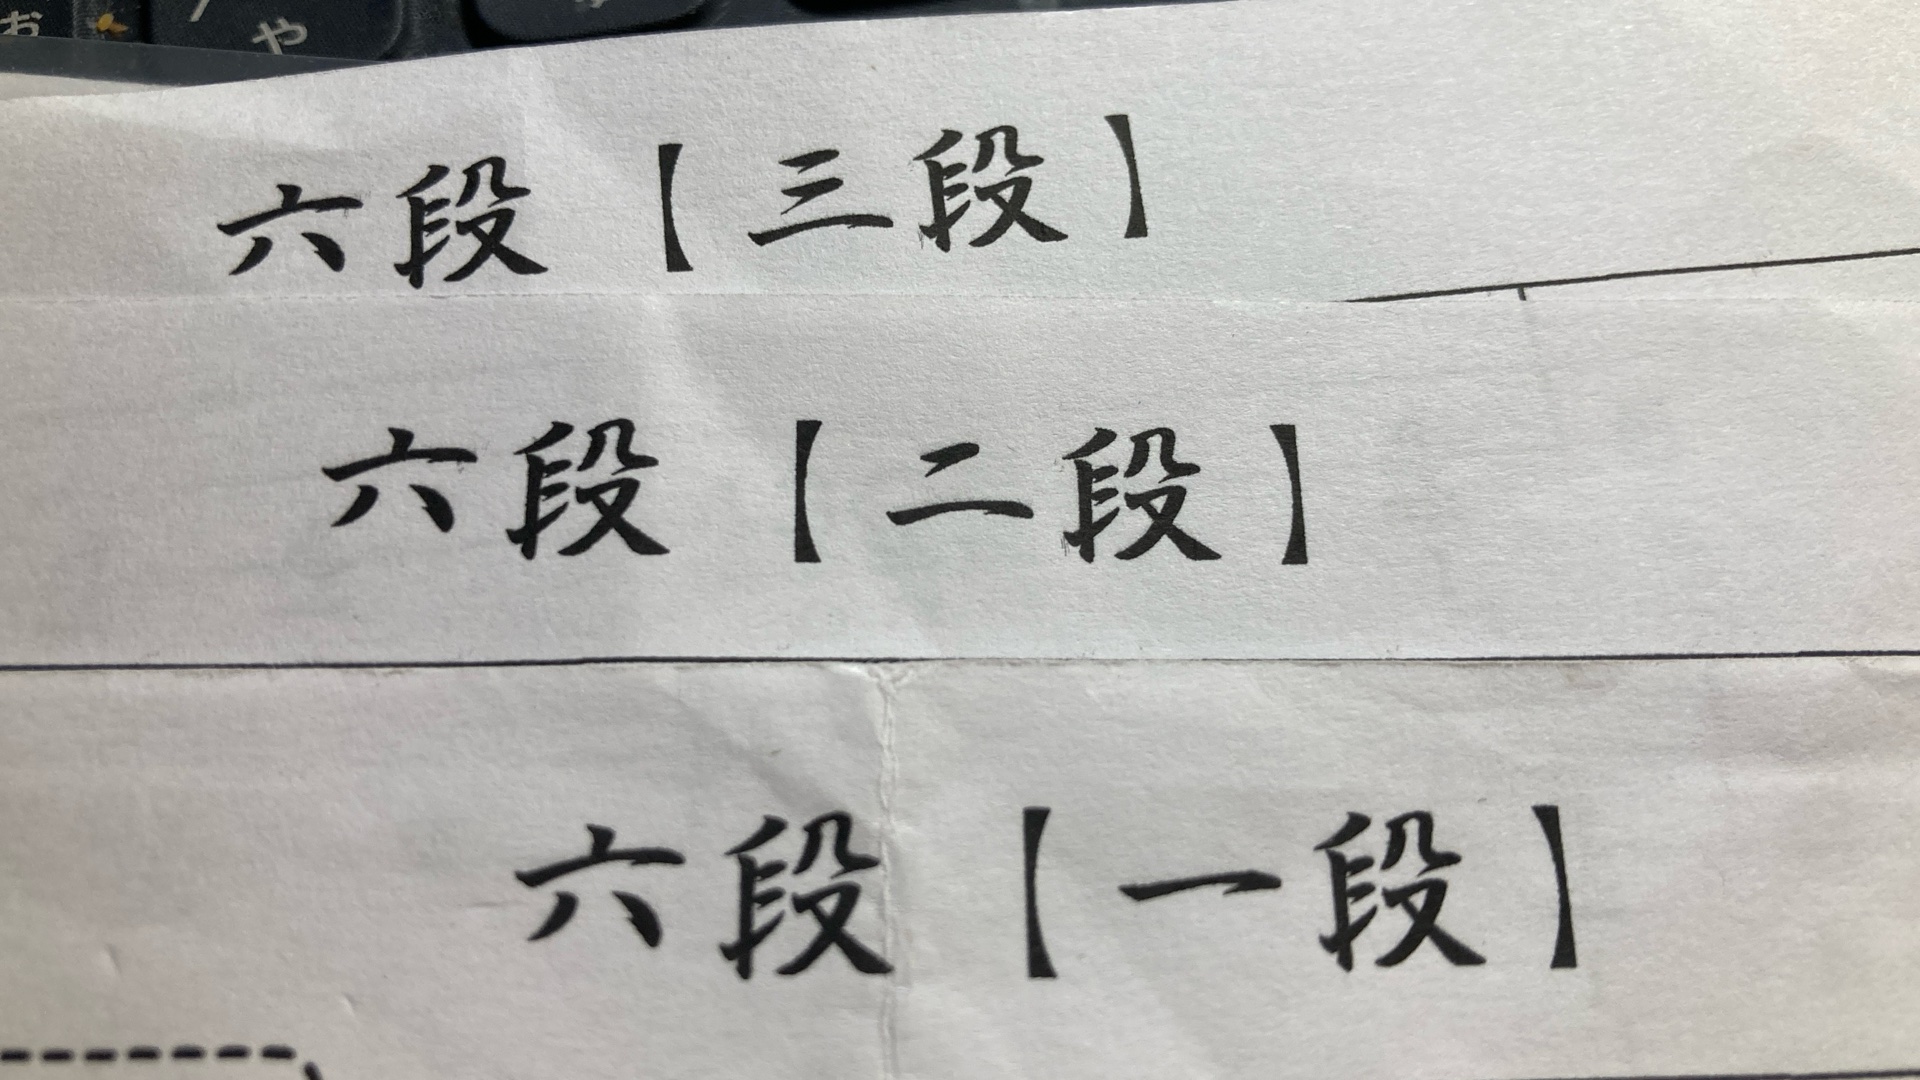 お
や
六段【三段】
六段【二段】
六段【一段】